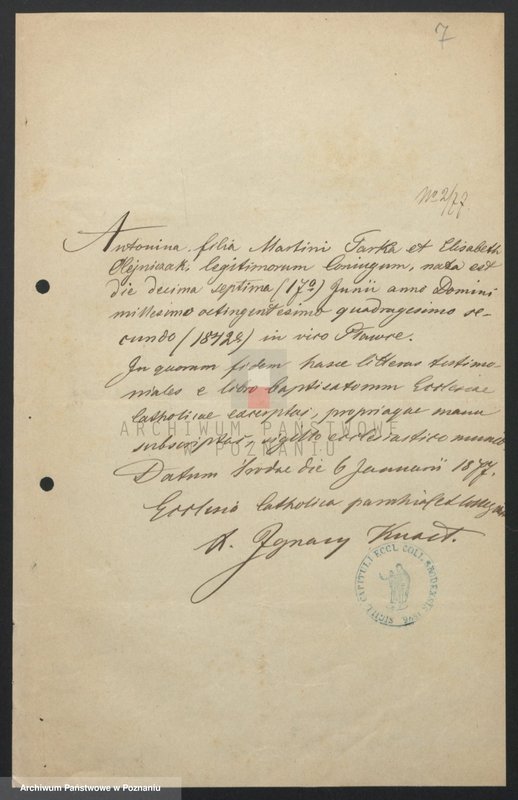 7
No 2/77
Antonina filia Martini Tarka et Elisabeth
Olejniczak, legitimorum Conjugum, nata est
die decima septima (17a) Junii anno Domini
millesimo octingentesimo quadragesimo se-
cundo (1842) in vico Pławce.
In quorum fidem hasce litteras testimo-
niales e libro baptisatorum Ecclesiae
Catholicae excerptas, propriaque manu
subscriptas, sigillo ecclesiastico munio
Datum Srodae die 6 Januarii 1877.
Ecclesia Catholica parochialis et
X. Ignacy
SIGILL CAPITULI ECCL COLL
ARCHIWUM PAŃSTWOWE
W POZNANIU
Archiwum Państwowe w Poznaniu